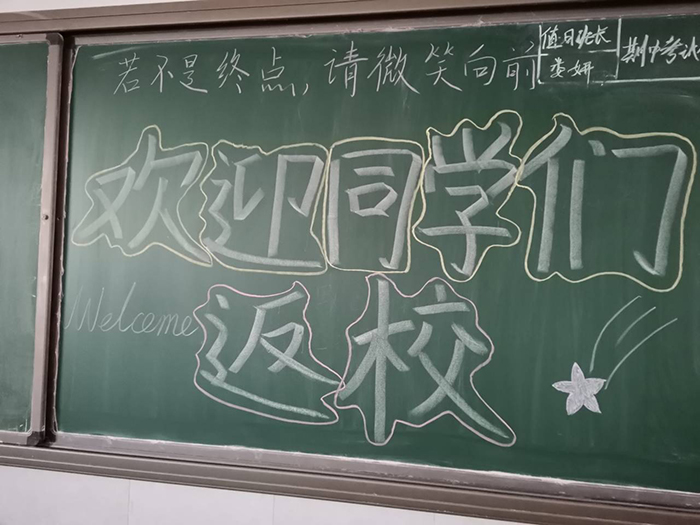 若不是终点，请微笑向前
值日班长
娄妍
期中考
欢迎同学们
Welcome
返校